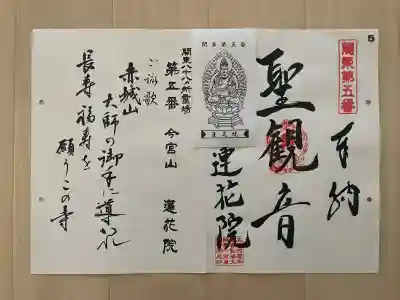 5
關東第五番
奉納
聖觀音
蓮花院
関東第五番
関東八十八ヵ所霊場
第五番 今宮山 蓮花院
ご詠歌
赤城山
大師の御手に導かれ
長寿福寿を
願うこの寺